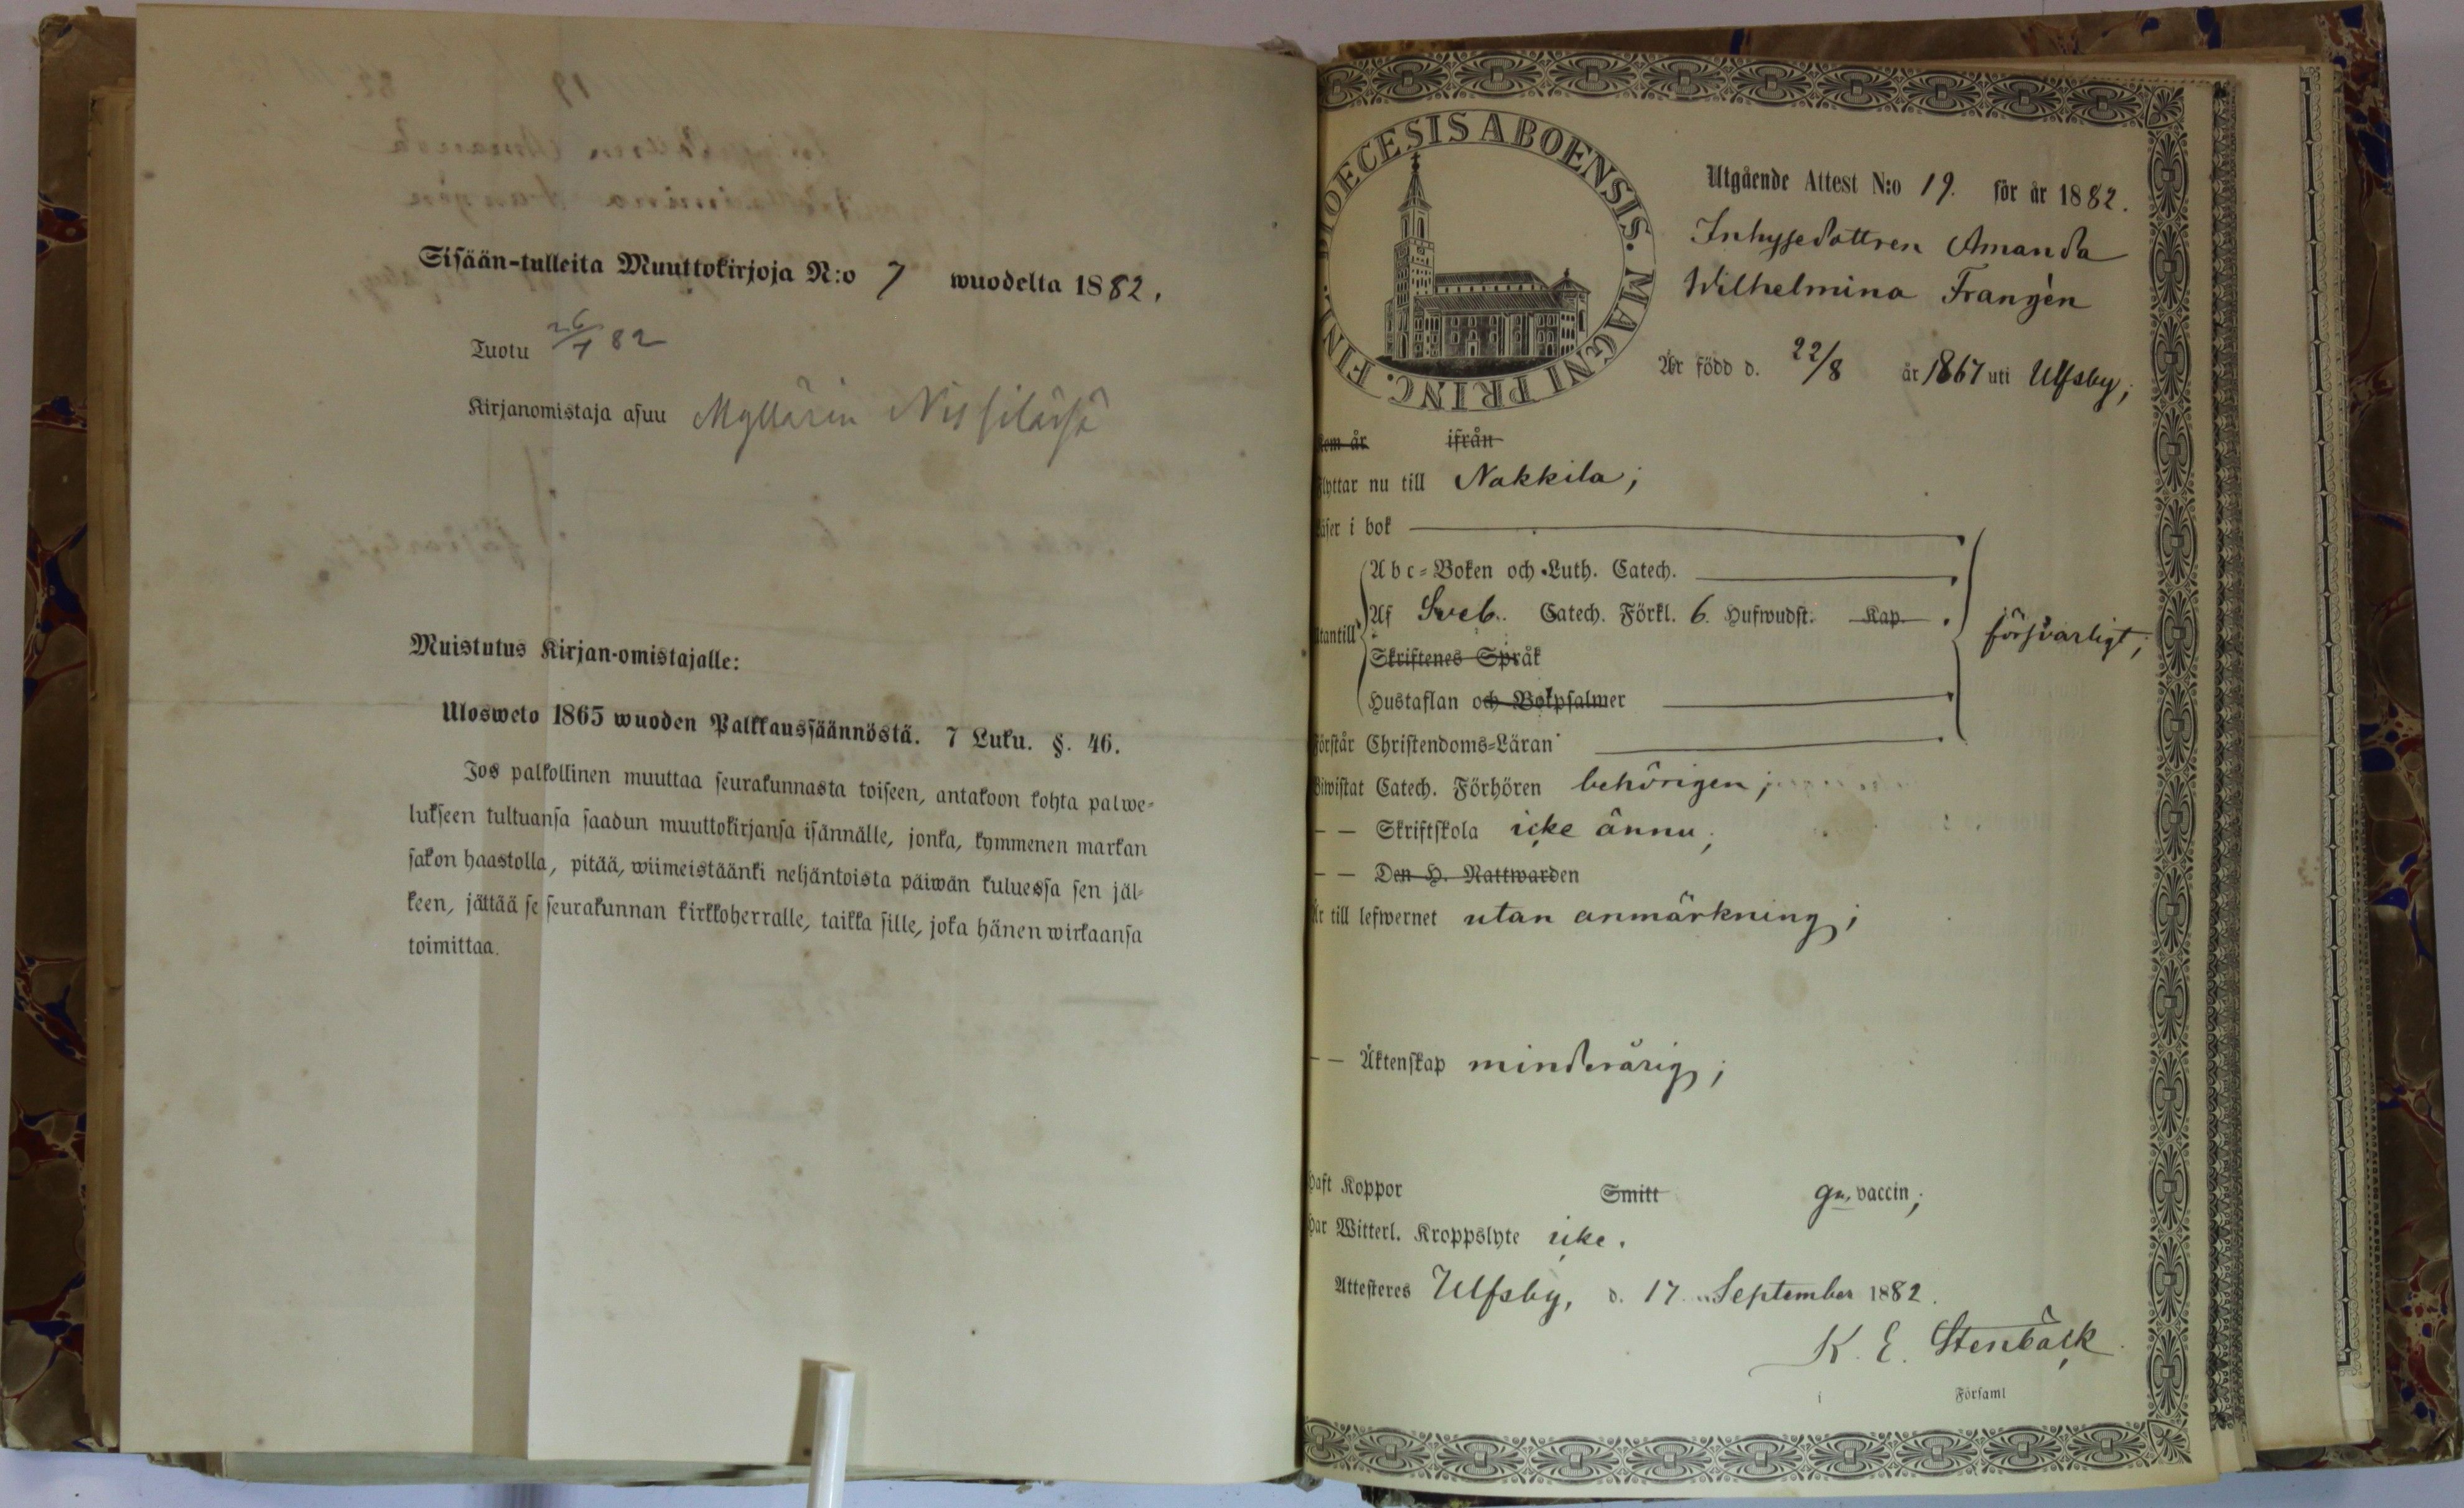 Sisään-tulleita Muuttokirjoja N:o 7 wuodelta 1882.
Tuotu 82
Kirjanomistaja asuu Myllärin Nissilässä
Muistutus Kirjan-omistajalle:
Ulosweto 1865 wuoden Palkkaussäännöstä. 7 Luku. §. 46.
Jos palkollinen muuttaa seurakunnasta toiseen, antakoon kohta palwe=
lukseen tultuansa saadun muuttokirjansa isännälle, jonka, kymmenen markan
sakon haastolla, pitää, wiimeistäänki neljäntoista päiwän kuluessa sen jäl=
keen, jättää se seurakunnan kirkkoherralle, taikka sille, joka hänen wirkaansa
toimittaa.
DIOECESIS ABOENSIS. MAGNI PRINC. FINL.
Utgående Attest N:o 19. för år 1882.
Inhysedottren Amanda
Wilhelmina Frangèn
Är född d. 22/8 år 1867 uti Ulfsby;
Kom år ifrån
flyttar nu till Nakkila;
Läser i bok
Abc=Boken och Luth. Catech.
Utantill Af Sveb. Catech. Förkl. 6. Hufwudst. Kap. försvarligt;
Skriftenes Språk
Hustaflan och Bokpsalmer
Förstår Christendoms=Läran
Biwistat Catech. Förhören behörigen;
— — Skriftskola icke ännu;
— — Den H. Nattwarden
Är till lefwernet utan anmärkning;
— — Äktenskap minderårig;
Haft Koppor Smitt gn. vaccin;
Har Witterl. Kroppslyte icke.
Attesteres Ulfsby, d. 17. September 1882.
K. E. Stenbäck.
i Församl